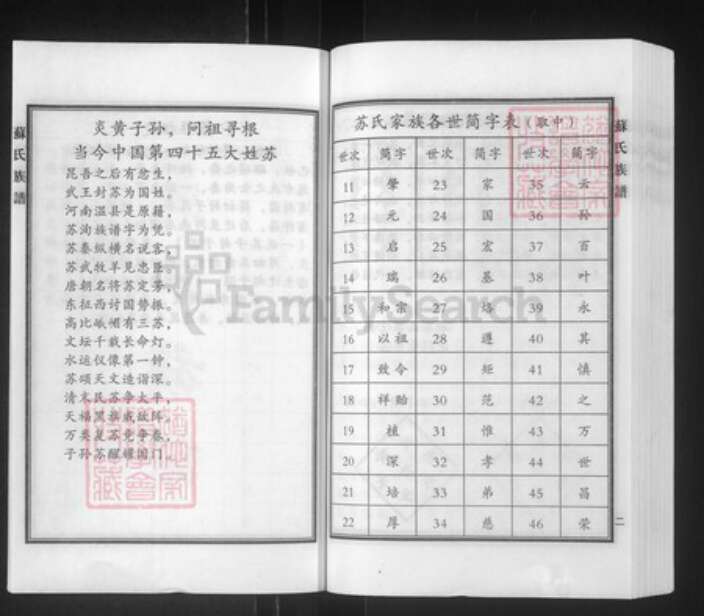 蘇氏族譜
炎黄子孙，问祖寻根
当今中国第四十五大姓苏
昆吾之后有忿生，
武王封苏为国姓。
河南温县是原籍，
苏洵族谱字为凭。
苏秦纵横名说客，
苏武牧羊见忠臣。
唐朝名将苏定芳，
东征西讨国势振。
高比峨嵋有三苏，
文坛千载长命灯。
水运仪像第一钟，
苏颂天文造诣深。
清末民苏争太平，
天福黑旗威敌阵。
万类复苏竞争春，
子孙苏醒耀国门。
苏氏家族各世简字表（取中）
世次 简字 世次 简字 世次 简字
11 肇 23 家 35 云
12 元 24 国 36 孙
13 启 25 宏 37 百
14 瑞 26 基 38 叶
15 和宗 27 39 永
16 以祖 28 遵 40 其
17 致令 29 矩 41 慎
18 祥贻 30 范 42 之
19 植 31 惟 43 万
20 深 32 孝 44 世
21 培 33 弟 45 昌
22 厚 34 慈 46 荣
蘇氏族譜
二
FamilySearch